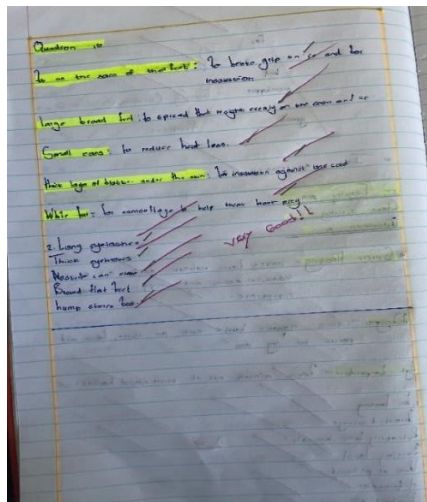 Question 10
on the soles of their feet: To better grip on ice and for
insulation
Large broad feet: to spread that weight evenly on the snow and ice
Small ears: to reduce heat loss.
Thick layer of blubber under the skin: To insulation against the cold
White fur: for camouflage to help them hunt prey
2. Long eyelashes
Thick eyebrows
Nostrils can close
Broad flat feet
hump stores fat
Very Good!!